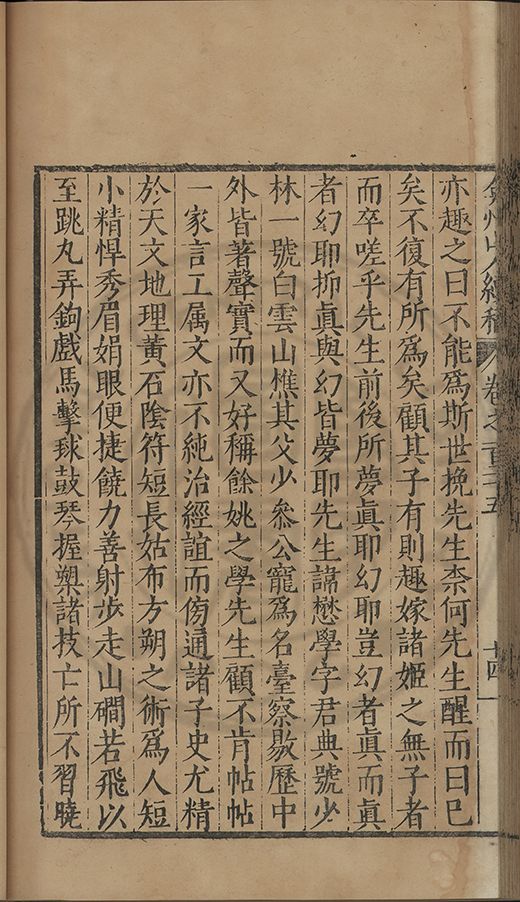 弇州山人續稿 卷之一百三十五 十四
亦趣之曰不能爲斯世挽先生柰何先生醒而曰已
矣不復有所爲矣顧其子有則趣嫁諸姬之無子者
而卒嗟乎先生前後所夢眞耶幻耶豈幻者眞而眞
者幻耶抑眞與幻皆夢耶先生諱懋學字君典號少
林一號白雲山樵其父少參公寵爲名臺察敭歷中
外皆著聲實而又好稱餘姚之學先生顧不肯帖帖
一家言工属文亦不純治經誼而傍通諸子史尤精
於天文地理黃石陰符短長姑布方朔之術爲人短
小精悍秀眉娟眼便捷饒力善射步走山磵若飛以
至跳丸弄鉤戲馬擊球鼓琴握槊諸技亡所不習曉